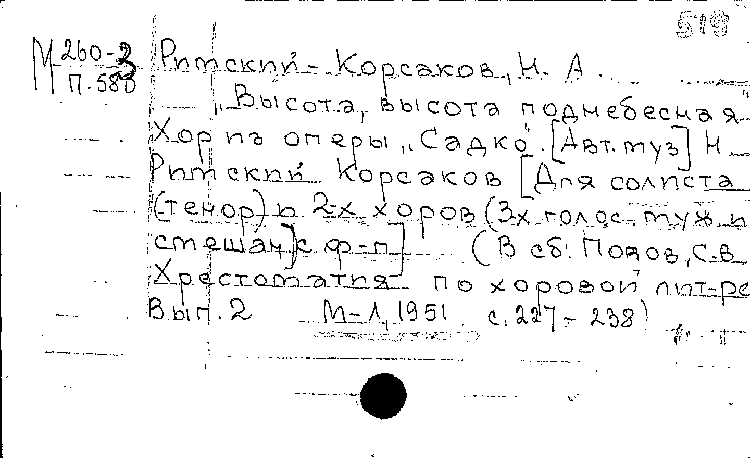 519
М 260-3
П. 580
Римский - Корсаков, Н. А.
„Высота, высота поднебесная"
Хор из оперы „Садко". [Авт. муз] Н.
Римский Корсаков [Для солиста
(тенор) и 2-х хоров (3х голос. муж и
смешан) с ф-п] (В сб: Попов, С.В.
Хрестоматия по хоровой лит-ре
Вып. 2 М-Л, 1951 с. 227-238)